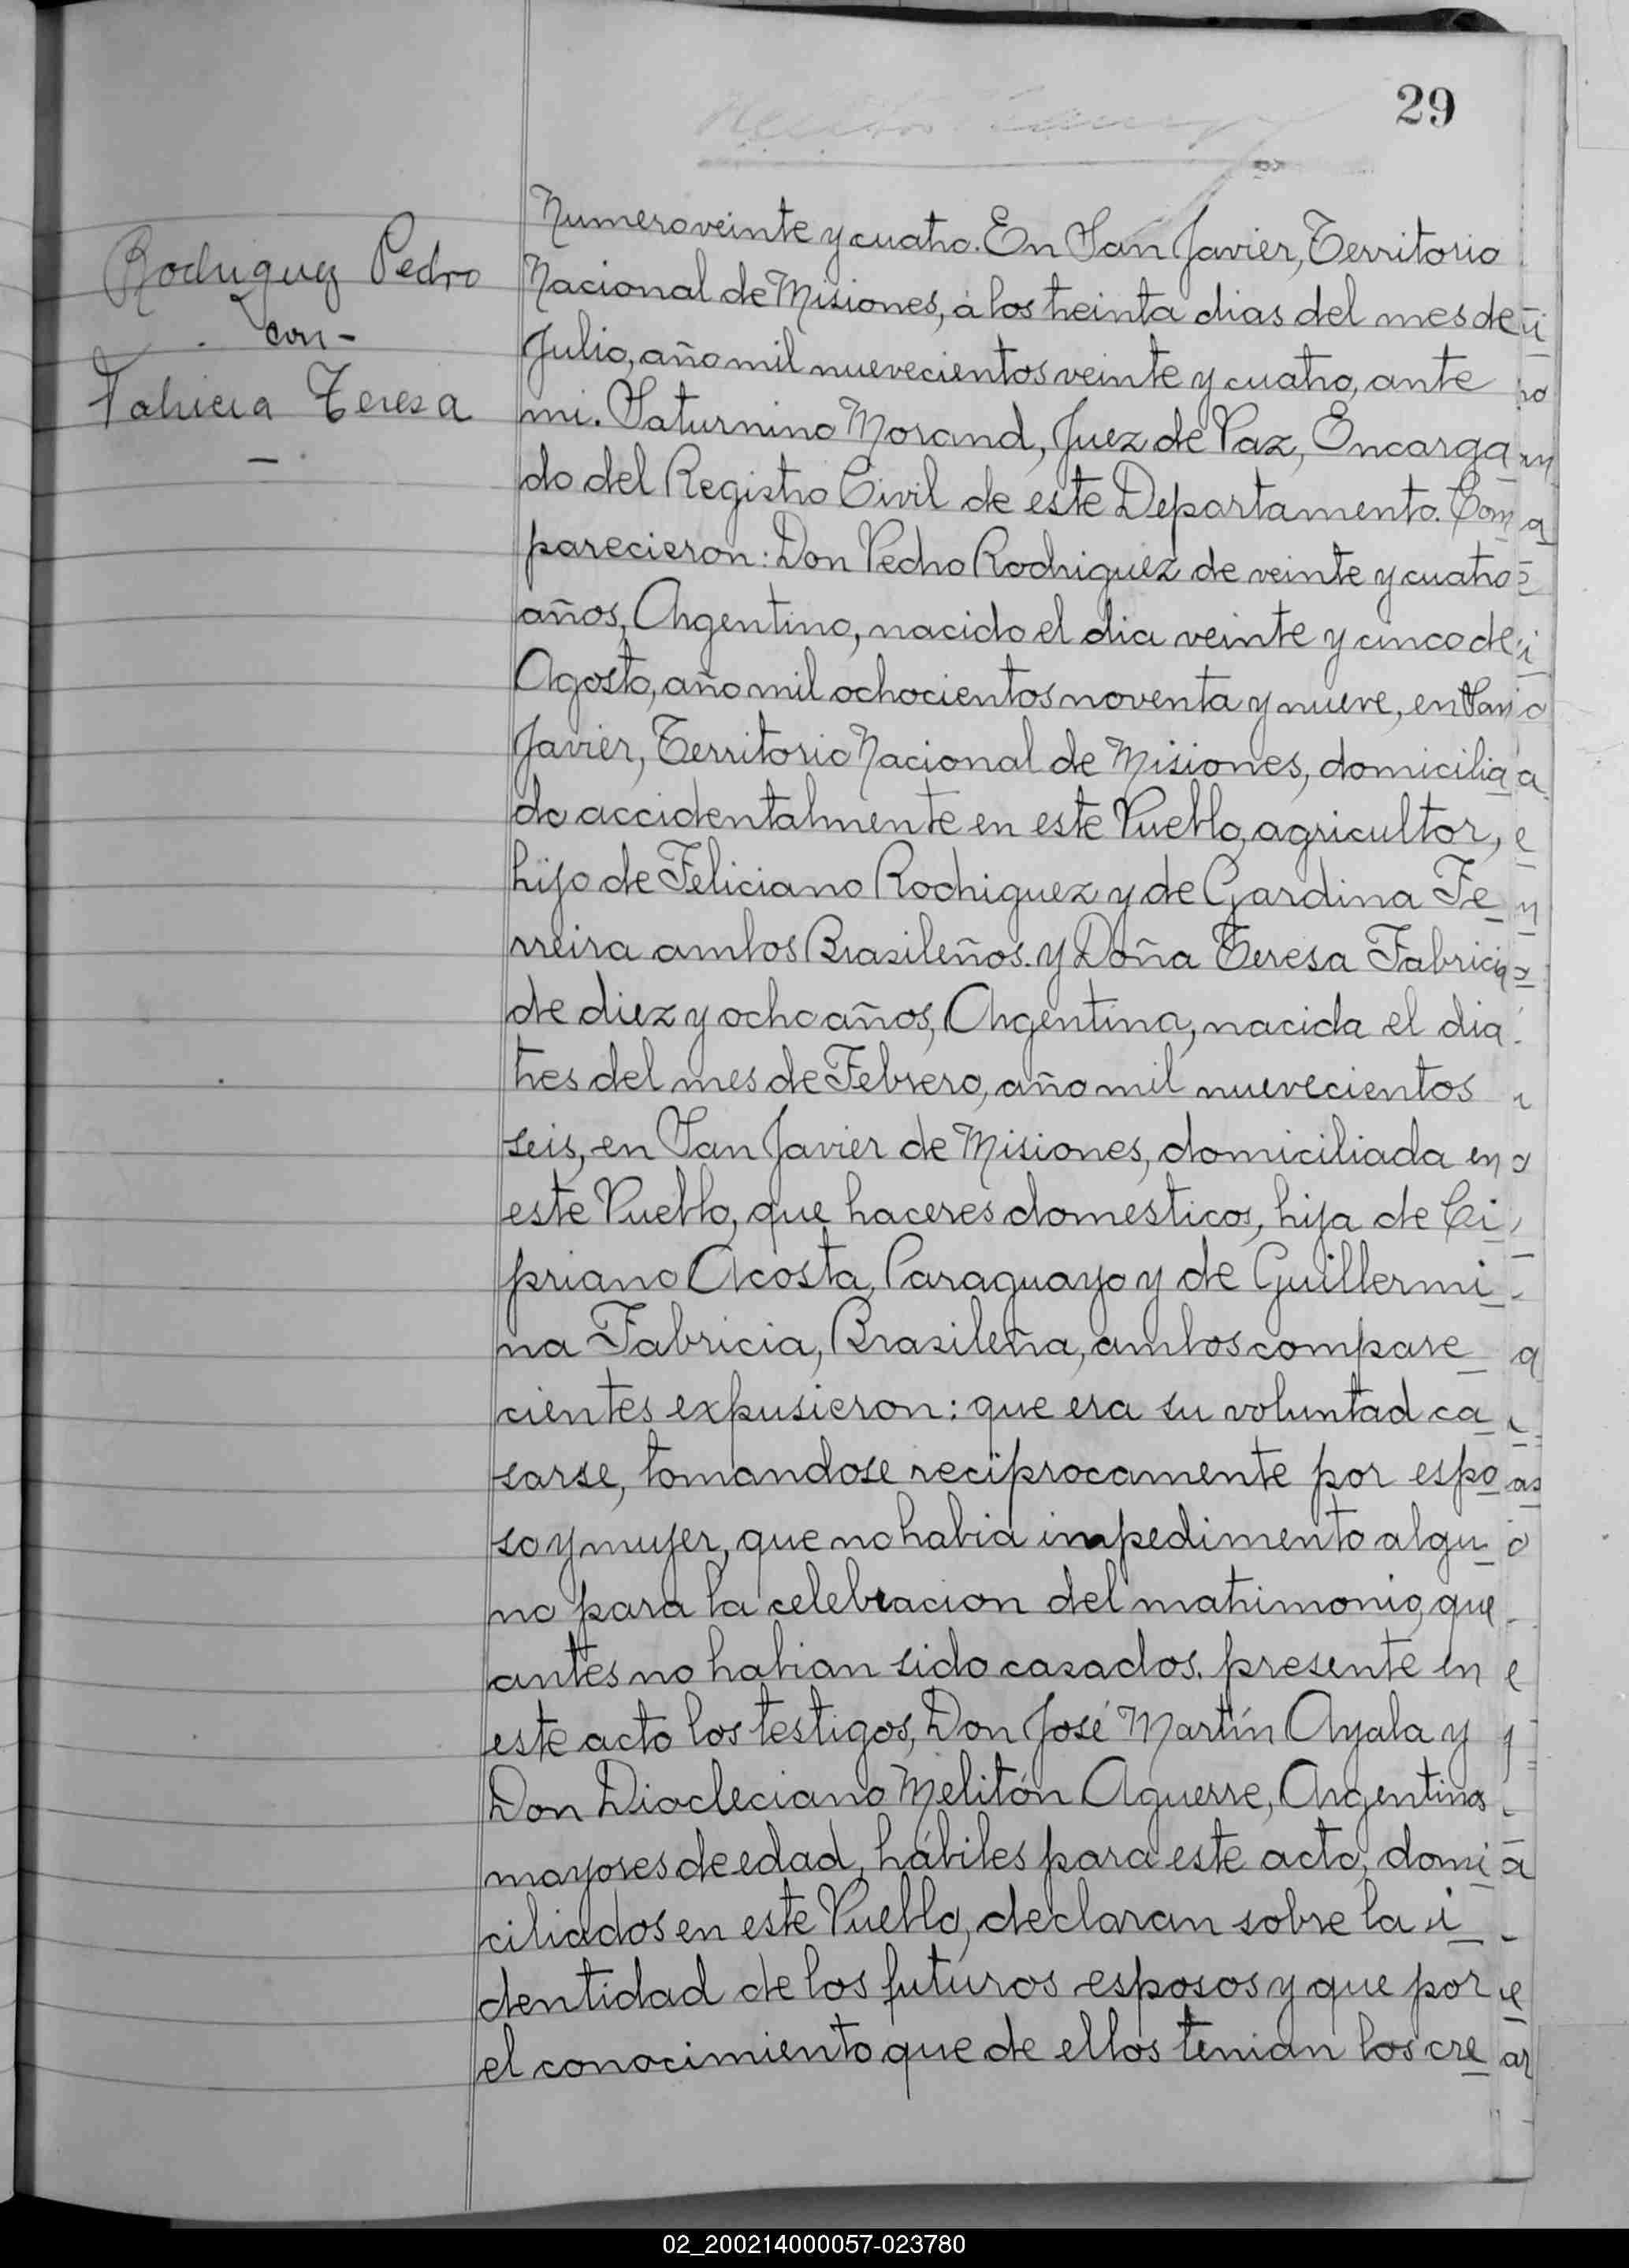 29
Rodriguez Pedro
con-
Fabricia Teresa
Numero veinte y cuatro. En San Javier, Territorio
Nacional de Misiones, á los treinta dias del mes de
Julio, año mil nuevecientos veinte y cuatro, ante
mi. Saturnino Morand, Juez de Paz, Encarga
do del Registro Civil de este Departamento. Com
parecieron: Don Pedro Rodriguez de veinte y cuatro
años, Argentino, nacido el dia veinte y cinco de
Agosto, año mil ochocientos noventa y nueve, en San
Javier, Territorio Nacional de Misiones, domicilia
do accidentalmente en este Pueblo, agricultor,
hijo de Feliciano Rodriguez y de Gardina Fe
rreira ambos Brasileños. y Doña Teresa Fabricia
de diez y ocho años, Argentina, nacida el dia
tres del mes de Febrero, año mil nuevecientos
seis, en San Javier de Misiones, domiciliada en
este Pueblo, que haceres domesticos, hija de Ci
priano Acosta, Paraguayo y de Guillermi
na Fabricia, Brasileña, ambos compare
cientes expusieron: que era su voluntad ca
sarse, tomandose reciprocamente por espo
so y mujer, que no habia impedimento algu
no para la celebracion del matrimonio, que
antes no habian sido casados. presente en
este acto los testigos, Don José Martín Ayala y
Don Diocleciano Melitón Aguerre, Argentinos
mayores de edad, hábiles para este acto, domi
ciliados en este Pueblo, declaran sobre la i
dentidad de los futuros esposos y que por
el conocimiento que de ellos tenian los cre
02_200214000057-023780